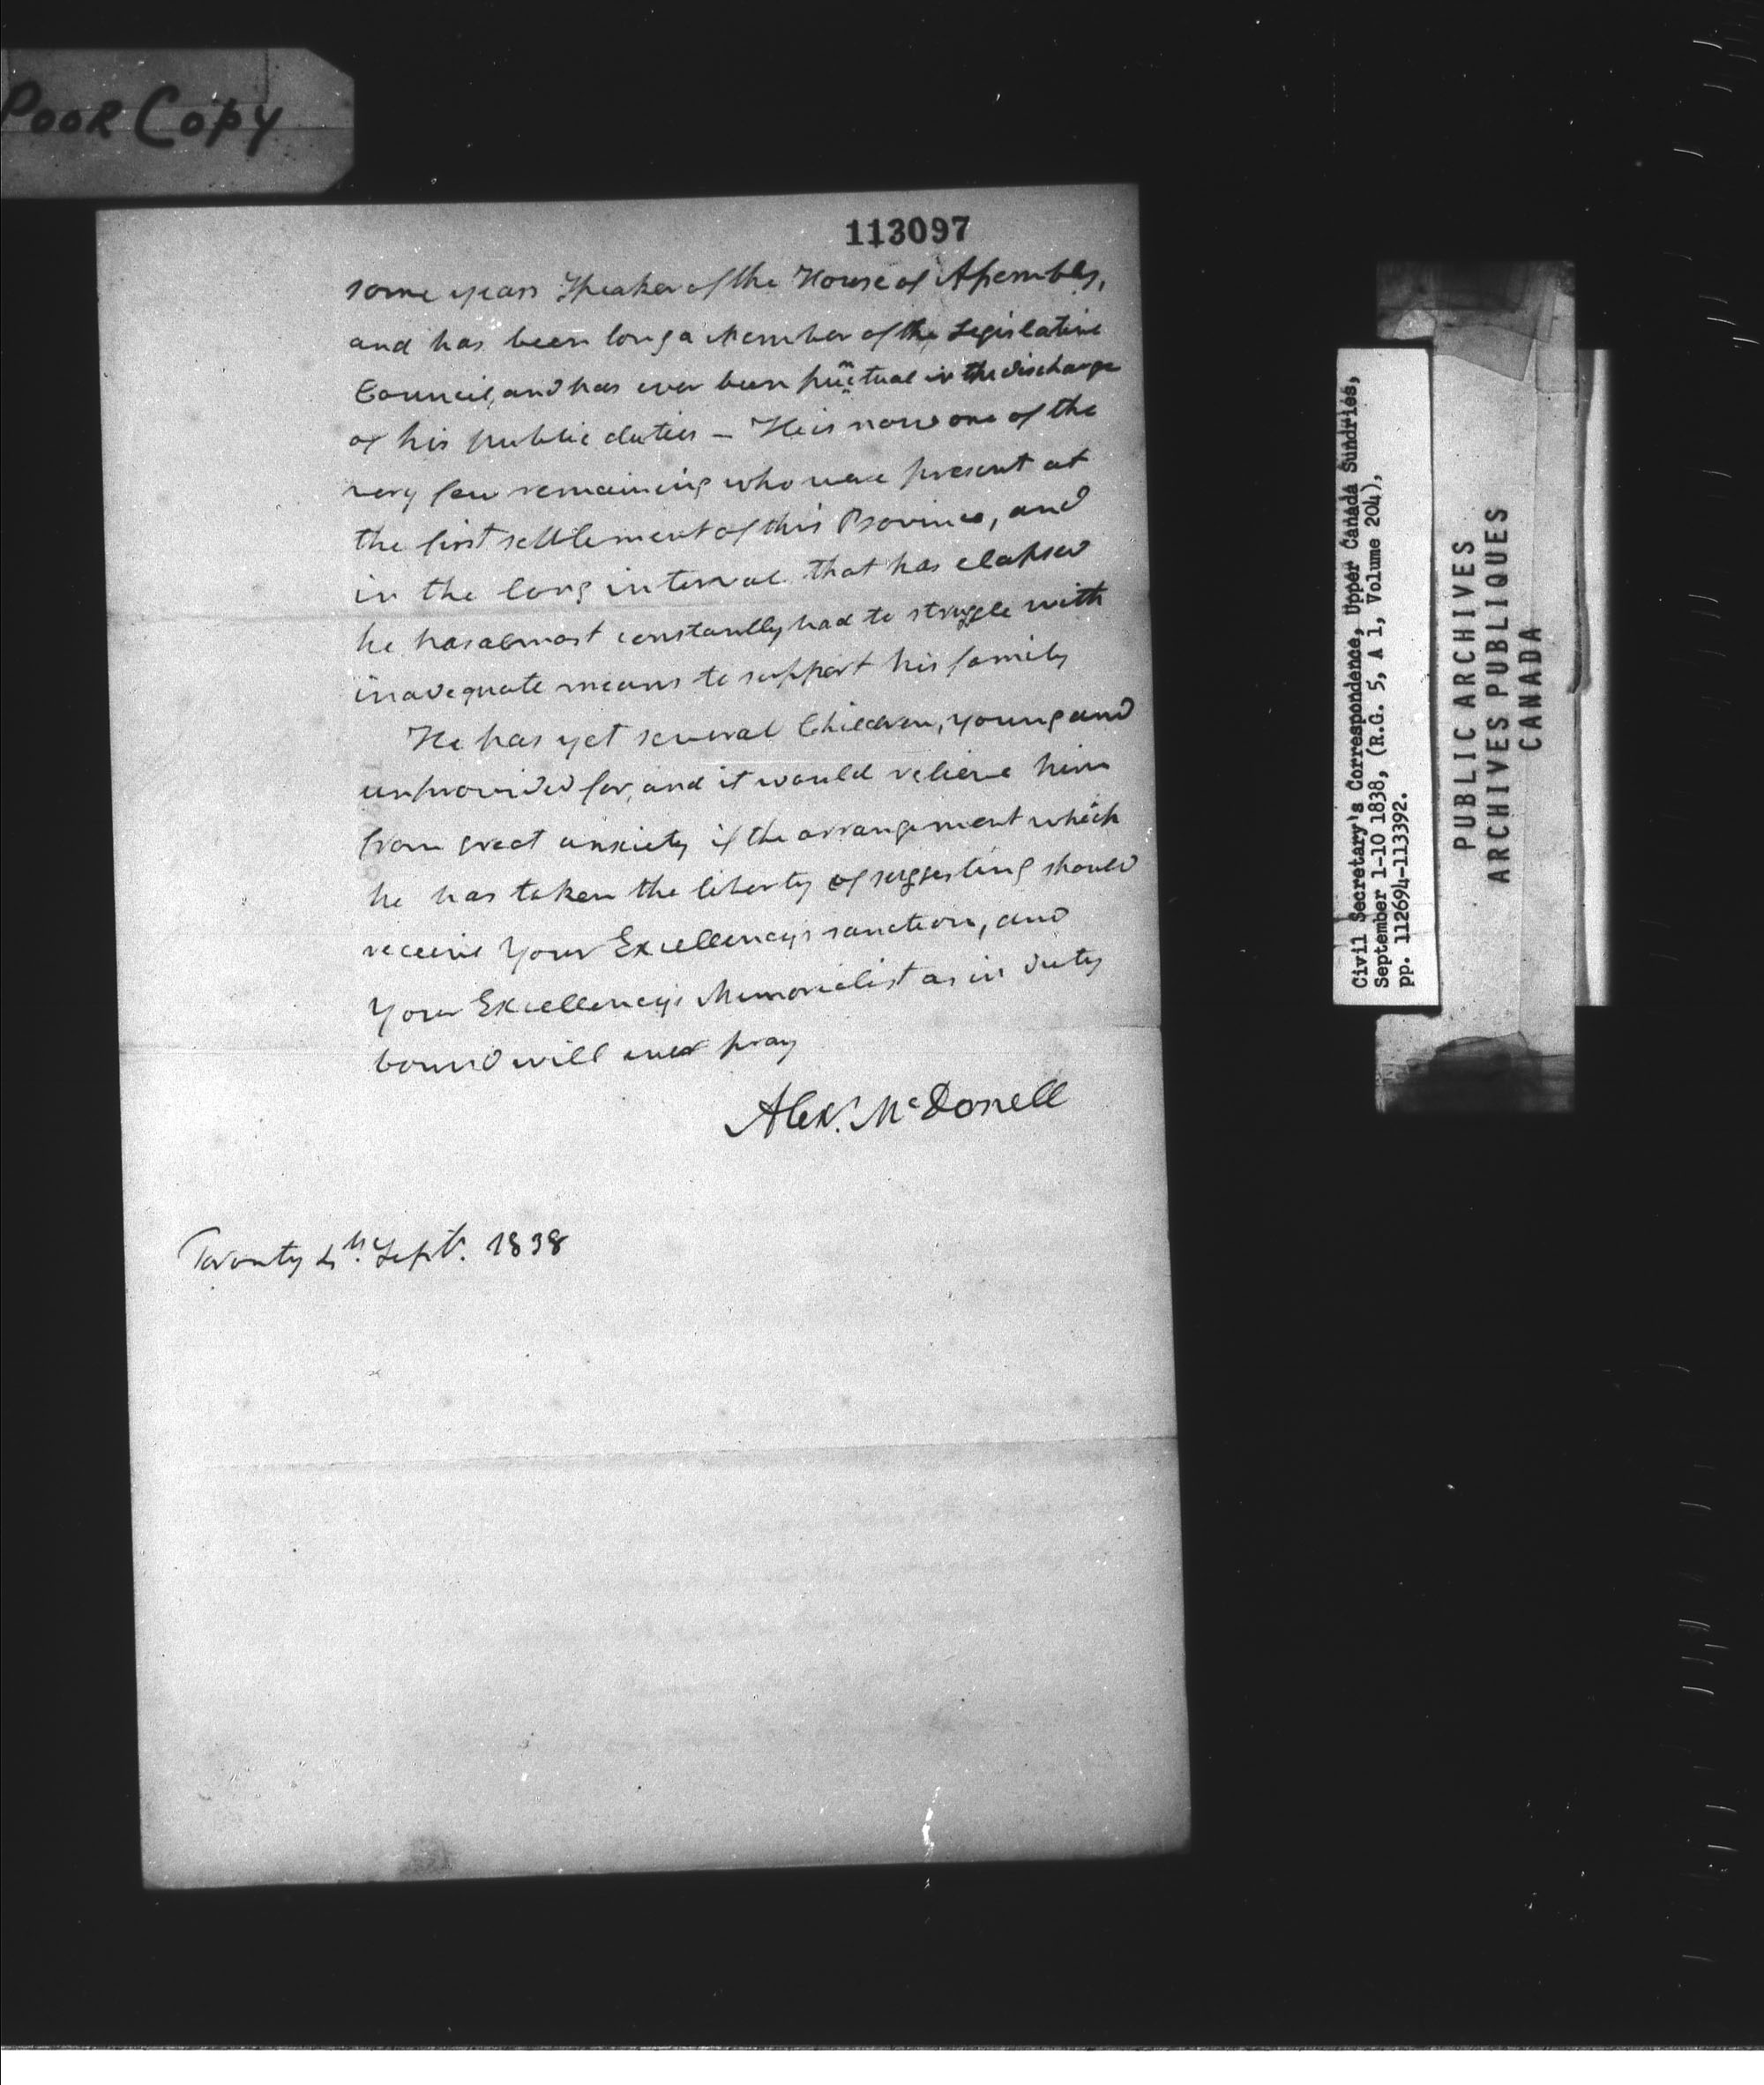 Poor Copy
113097
some years Speaker of the House of Assembly,
and has been long a Member of the Legislative
Council, and has ever been punctual in the discharge
of his public duties – He is now one of the
very few remaining who were present at
the first settlement of this Province, and
in the long interval that has elapsed
he has almost constantly had to struggle with
inadequate means to support his family
He has yet several Children, young and
unprovided for, and it would relieve him
from great anxiety if the arrangement which
he has taken the liberty of suggesting should
receive Your Excellency's sanction, and
Your Excellency's Memorialist as in duty
bound will ever pray
Alexr. McDonell
Toronto 4th. Sept. 1838
Civil Secretary's Correspondence, Upper Canada Sundries,
September 1-10 1838, (R.G. 5, A 1, Volume 204),
pp. 112694-113392.
PUBLIC ARCHIVES
ARCHIVES PUBLIQUES
CANADA